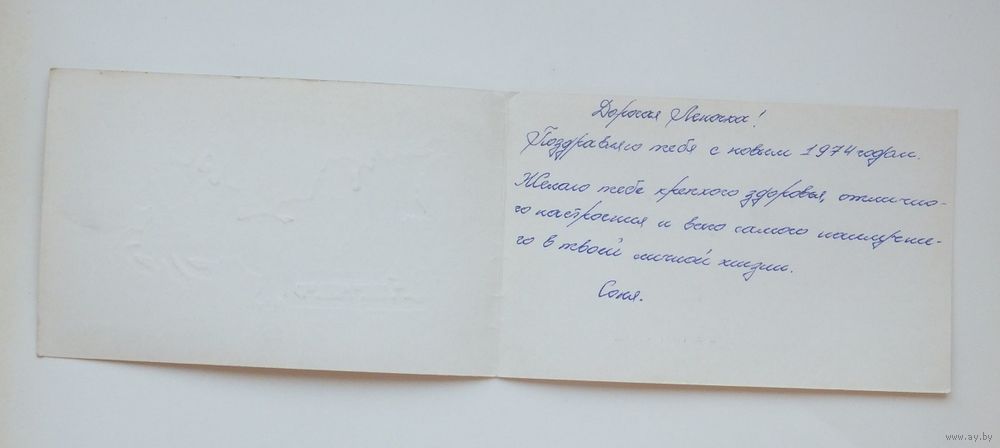 Дорогая Леночка!
Поздравляю тебя с новым 1974 годом.
Желаю тебе крепкого здоровья, отлично-
го настроения и всего самого наилучше-
го в твоей личной жизни.
Соня.
www.ay.by